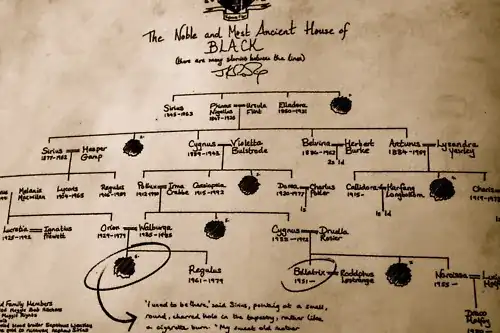 The Noble and Most Ancient House of
BLACK
(there are many stories between the lines)
Sirius Phineas Nigellus Ursula Flint Elladora
1845-1853 1847-1925 1850-1931
Sirius Hesper Gamp Cygnus Violetta Bulstrode Belvina Herbert Burke Arcturus Lysandra Yaxley
1877-1952 1889-1943 1886-1962 1884-1959
2s 1d
Melania Macmillan Lycoris Regulus Pollux Irma Crabbe Cassiopeia Dorea Charles Potter Callidora Harfang Longbottom Charis
1904-1965 1906-1959 1912-1990 1915-1992 1920-1977 1915- 1919-1973
1s 1s 1d
Lucretia Ignatius Prewett Orion Walburga Cygnus Druella Rosier
1925-1992 1929-1979 1925-1985 1938-1992
Regulus Bellatrix Rodolphus Lestrange Narcissa Lucius
1961-1979 1951- 1955-
Draco Malfoy
'I used to be there,' said Sirius, pointing at a small,
round, charred hole in the tapestry, rather like
a cigarette burn. 'My sweet old mother
Family Members